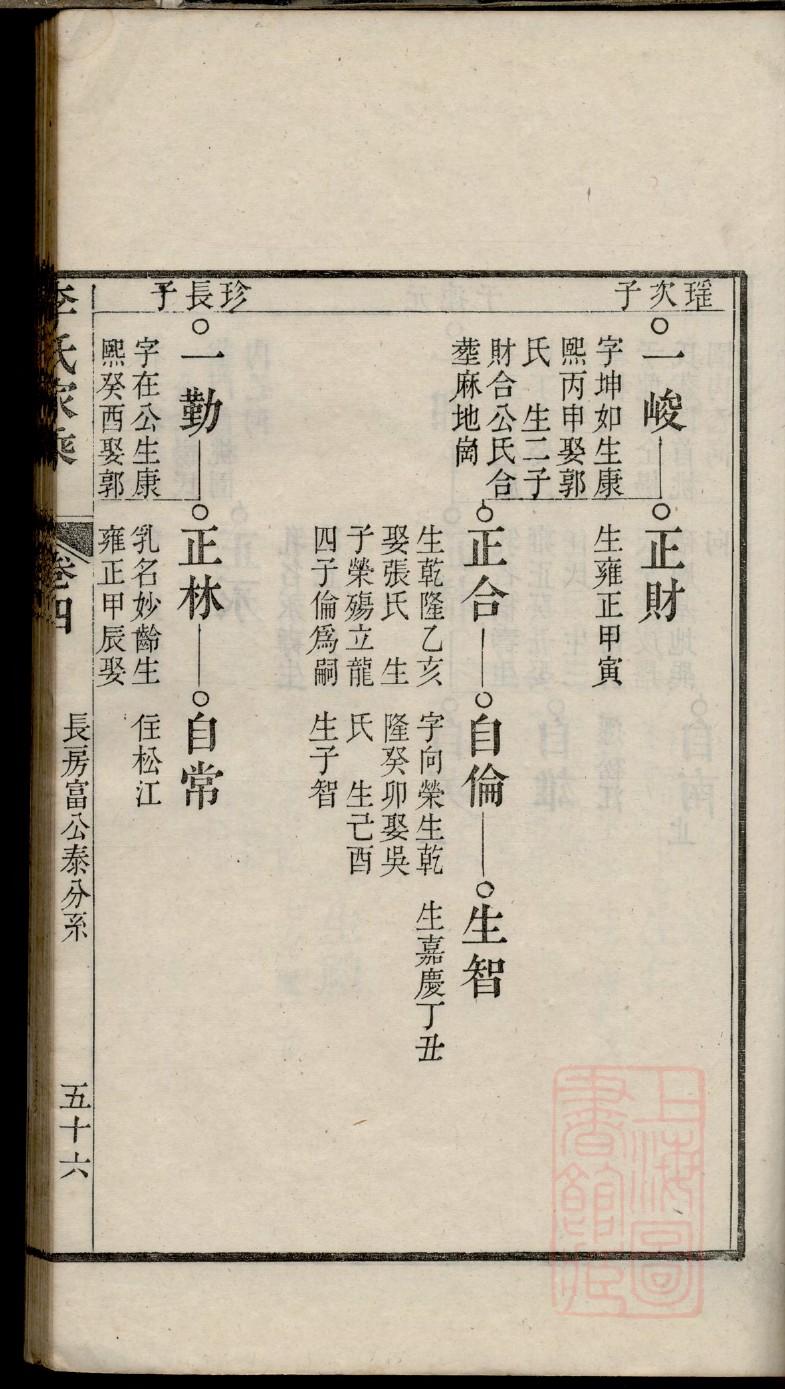 瑤次子
一峻
字坤如生康
熙丙申娶郭
氏　生二子
財合公氏合
塟麻地崗
正財
生雍正甲寅
正合
生乾隆乙亥
娶張氏　生
子榮殤立龍
四子倫爲嗣
自倫
字向榮生乾
隆癸卯娶吳
氏　生己酉
生子智
生智
生嘉慶丁丑
珍長子
一勤
字在公生康
熙癸酉娶郭
正林
乳名妙齡生
雍正甲辰娶
自常
住松江
李氏家乘
卷四
長房富公泰分系
五十六
上海圖書館藏